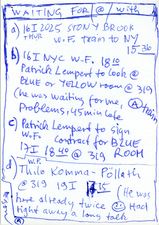 WAITING FOR @ with
a) 16 I 2025 STONY BROOK
W.F. TRAIN to NY
15:36
b) 16 I NYC W.F. 18
Patrick Lempert to look @
BLUE or YELLOW room @ 319
(he was waiting for me,
Problems, 45 min late
c) Patrick Lempert to sign
W.F. contract for BLUE
17 I 18 40 @ 319 ROOM
d) W.F. Thilo Komma-Pöllath
@ 319 19 I 15 (He was
here already twice Had
right away a long talk